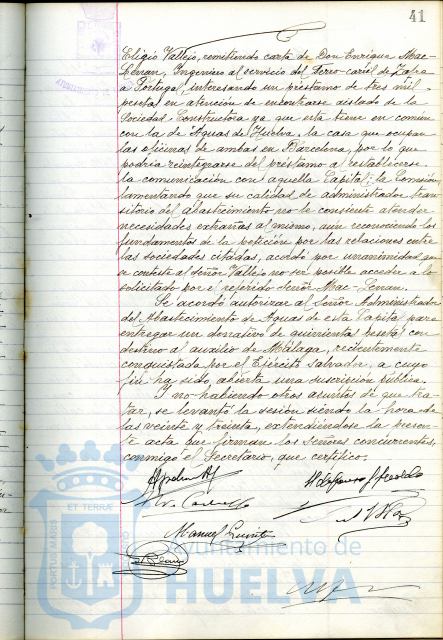 41
Eligio Vallejo, remitiendo carta de Don Enrique Mac-
Lenan, Ingeniero al servicio del Ferro-carril de Zafra
a Portugal, interesando un préstamo de tres mil
pesetas en atención de encontrarse aislado de la
Sociedad Constructora ya que esta tiene en comun
con la de Aguas de Huelva, la casa que ocupan
las oficinas de ambas en Barcelona, por lo que
podria reintegrarse del préstamo a restablecerse
la comunicación con aquella Capital; la Comisión
lamentando que su calidad de administrador tran-
sitorio del abastecimiento no le consiente atender
necesidades extrañas al mismo, aun reconociendo los
fundamentos de la petición por las relaciones entre
las sociedades citadas, acordó por unanimidad que
se conteste al Señor Vallejo no ser posible acceder a lo
solicitado por el referido Señor Mac-Lenan.
Se acordó autorizar al Señor Administrador
del Abastecimiento de Aguas de esta Capital para
entregar un donativo de quinientas pesetas con
destino al auxilio de Málaga, recientemente
conquistada por el Ejército Salvador, a cuyo
fin ha sido abierta una suscripción pública.
Y no habiendo otros asuntos de que tra-
tar, se levantó la sesión siendo la hora de
las veinte y treinta, extendiéndose la presen-
te acta que firman los Señores concurrentes,
conmigo el Secretario, que certifico.
Manuel
PORTUS MARIS
ET TERRÆ
Ayuntamiento de
HUELVA